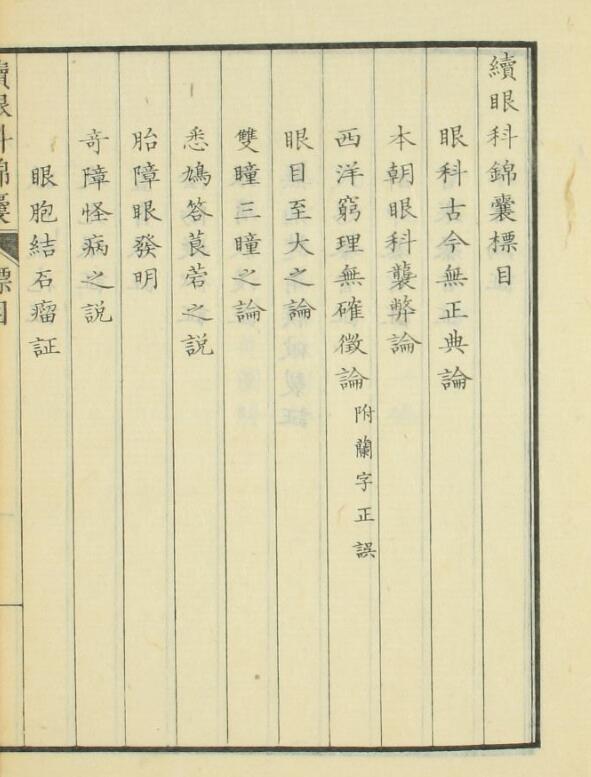 續眼科錦囊標目
眼科古今無正典論
本朝眼科襲弊論
西洋窮理無確徵論 附蘭字正誤
眼目至大之論
雙瞳三瞳之論
悉鳩答莨菪之説
胎障眼發明
奇障怪病之説
眼胞結石瘤証
續眼科錦囊 標目